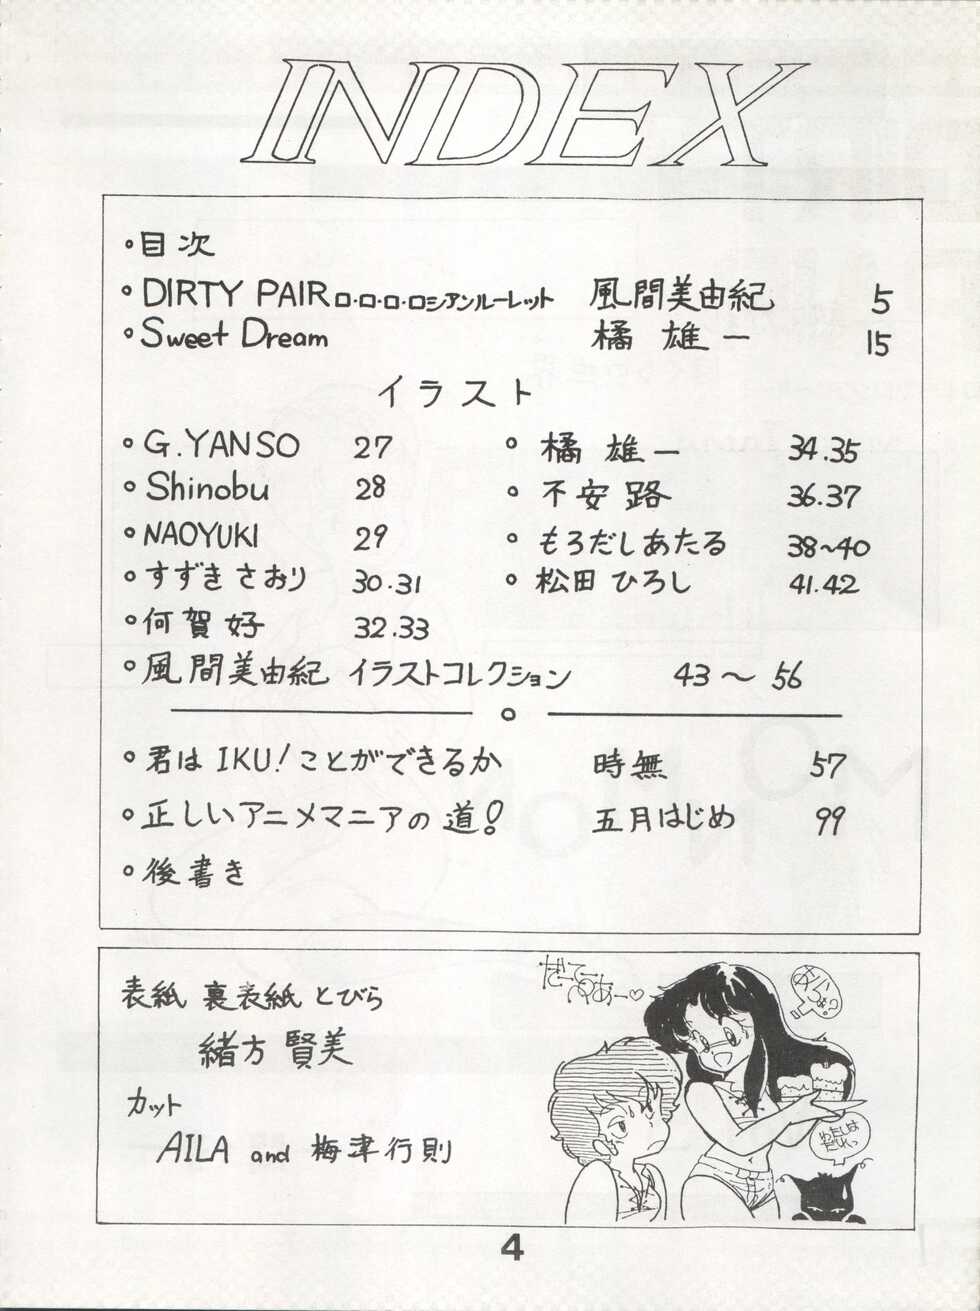 INDEX
・目次
・DIRTY PAIRロ・ロ・ロ・ロシアンルーレット 風間美由紀 5
・Sweet Dream 橘 雄一 15
イラスト
・G.YANSO 27
・Shinobu 28
・NAOYUKI 29
・すずき さおり 30.31
・何賀好 32.33
・橘 雄一 34.35
・不安路 36.37
・もろだしあたる 38~40
・松田 ひろし 41.42
・風間美由紀 イラストコレクション 43~56
・君は IKU!ことができるか 時無 57
・正しいアニメマニアの道! 五月はじめ 99
・後書き
表紙 裏表紙 とびら
緒方 賢美
カット
AILA and 梅津行則
わたしは
だれっ
4